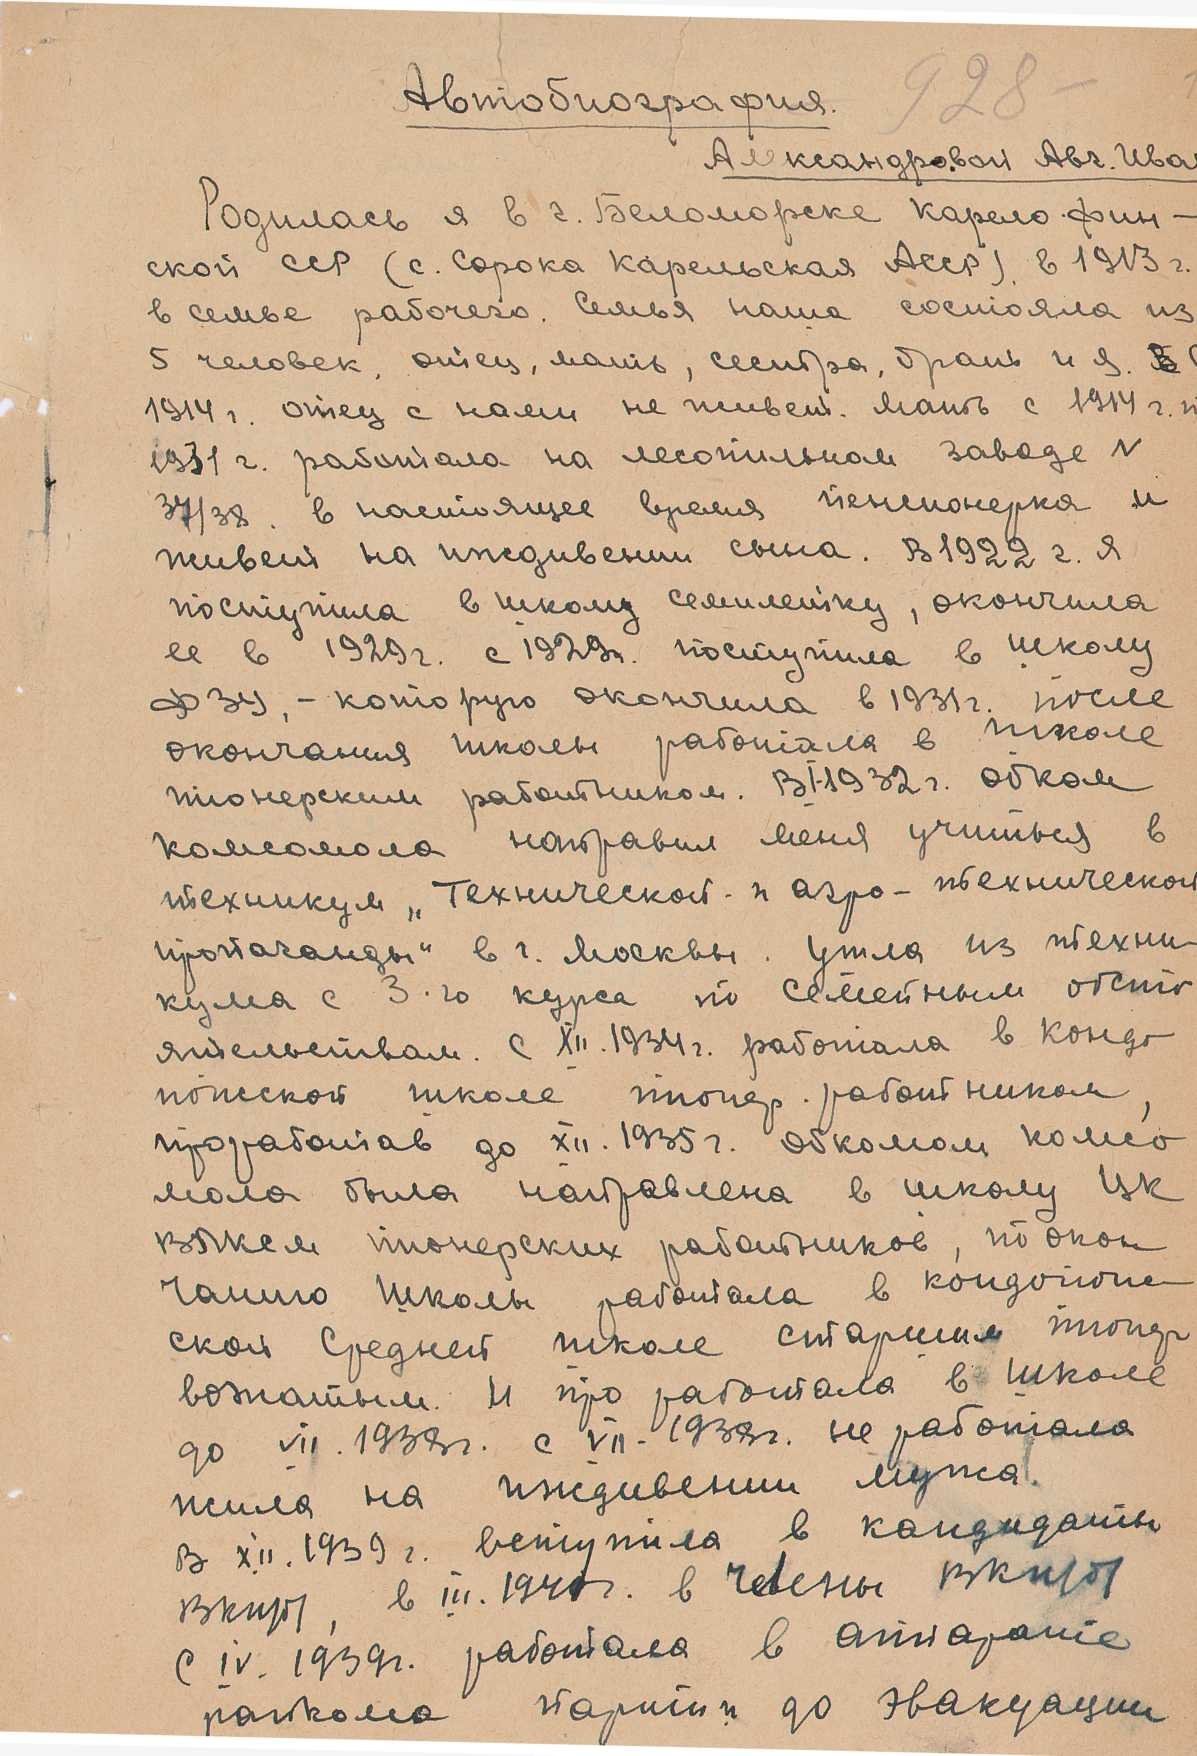 928-
Автобиография.
Александровой Авг. Ива
Родилась я в г. Беломорске Карело-фин-
ской ССР (с. Сорока Карельская АССР) в 1913 г.
в семье рабочего. Семья наша состояла из
5 человек, отец, мать, сестра, брат и я. В
1914 г. отец с нами не живет. Мать с 1914 г. п
1931 г. работала на лесопильном заводе N
37/38. в настоящее время пенсионерка и
живет на иждивении сына. В 1922 г. я
поступила в школу семилетку, окончила
ее в 1929г. с 1929г. поступила в школу
ФЗУ, - которую окончила в 1931г. после
окончания школы работала в школе
пионерским работником. В I-1932 г. обком
комсомола направил меня учиться в
техникум „Технической и агро-технической
пропаганды" в г. Москвы. Ушла из техни-
кума с 3-го курса по семейным обсто
ятельствам. С XII.1934г. работала в Кондо
пожской школе пионер. работником,
проработав до XII.1935г. обкомом комсо
мола была направлена в школу ЦК
ВЛКСМ пионерских работников, по окон
чанию школы работала в кондопож-
ской средней школе старшим пионер
вожатым. И про работала в школе
до VII.1938г. с VII-1938г. не работала
жила на иждивении мужа.
В XII.1939 г. вступила в кандидаты
ВКП/б/, в III.1941г. в члены ВКП/б/
С IV.1939г. работала в аппарате
райкома партии до эвакуации